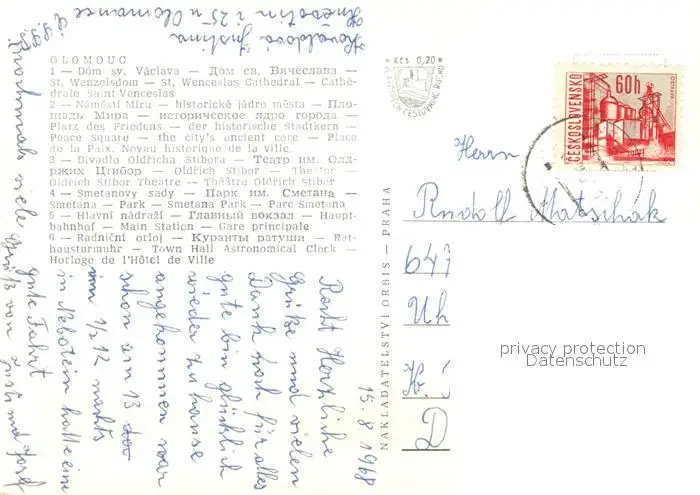 Kovaldová Justina
Hněvotín č 25 u Olomouce
OLOMOUC
1 — Dóm sv. Václava — Дом св. Вячеслава —
St. Wenzelsdom — St. Wenceslas Cathedral — Cathé-
drale Saint-Venceslas
2 — Náměstí Míru — historické jádro města — Пло-
щадь Мира — историческое ядро города —
Platz des Friedens — der historische Stadtkern —
Peace Square — the city's ancient core — Place
de la Paix. Noyau historique de la ville.
3 — Divadlo Oldřicha Stibora — Театр им. Олд-
ржих Цтибор — Oldřich Stibor — Theater —
Oldřich Stibor Theatre — Théâtre Oldřich Stibor
4 — Smetanovy sady — Парк им. Сметана —
Smetana — Park — Smetana Park — Parc Smetana
5 — Hlavní nádraží — Главный вокзал — Haupt-
bahnhof — Main Station — Gare principale
6 — Radniční orloj — Куранты ратуши — Rat-
hausturmuhr — Town Hall Astronomical Clock —
Horloge de l'Hôtel de Ville
15. 8 1968
Recht Herzliche
Grüße und vielen
Dank noch für alles
gute bin glücklich
wieder zu hause
angekommen war
schon um 13
im 1/2 12 nachts
in Nebotein hatte eine
gute Fahrt
Grüß von Justi und Josef
Nochmals viele
NAKLADATELSTVÍ ORBIS — PRAHA
Kčs 0,20
ČESKOSLOVENSKO
60h
Herrn
Rudolf Matschak
647
Uh
D
privacy protection
Datenschutz